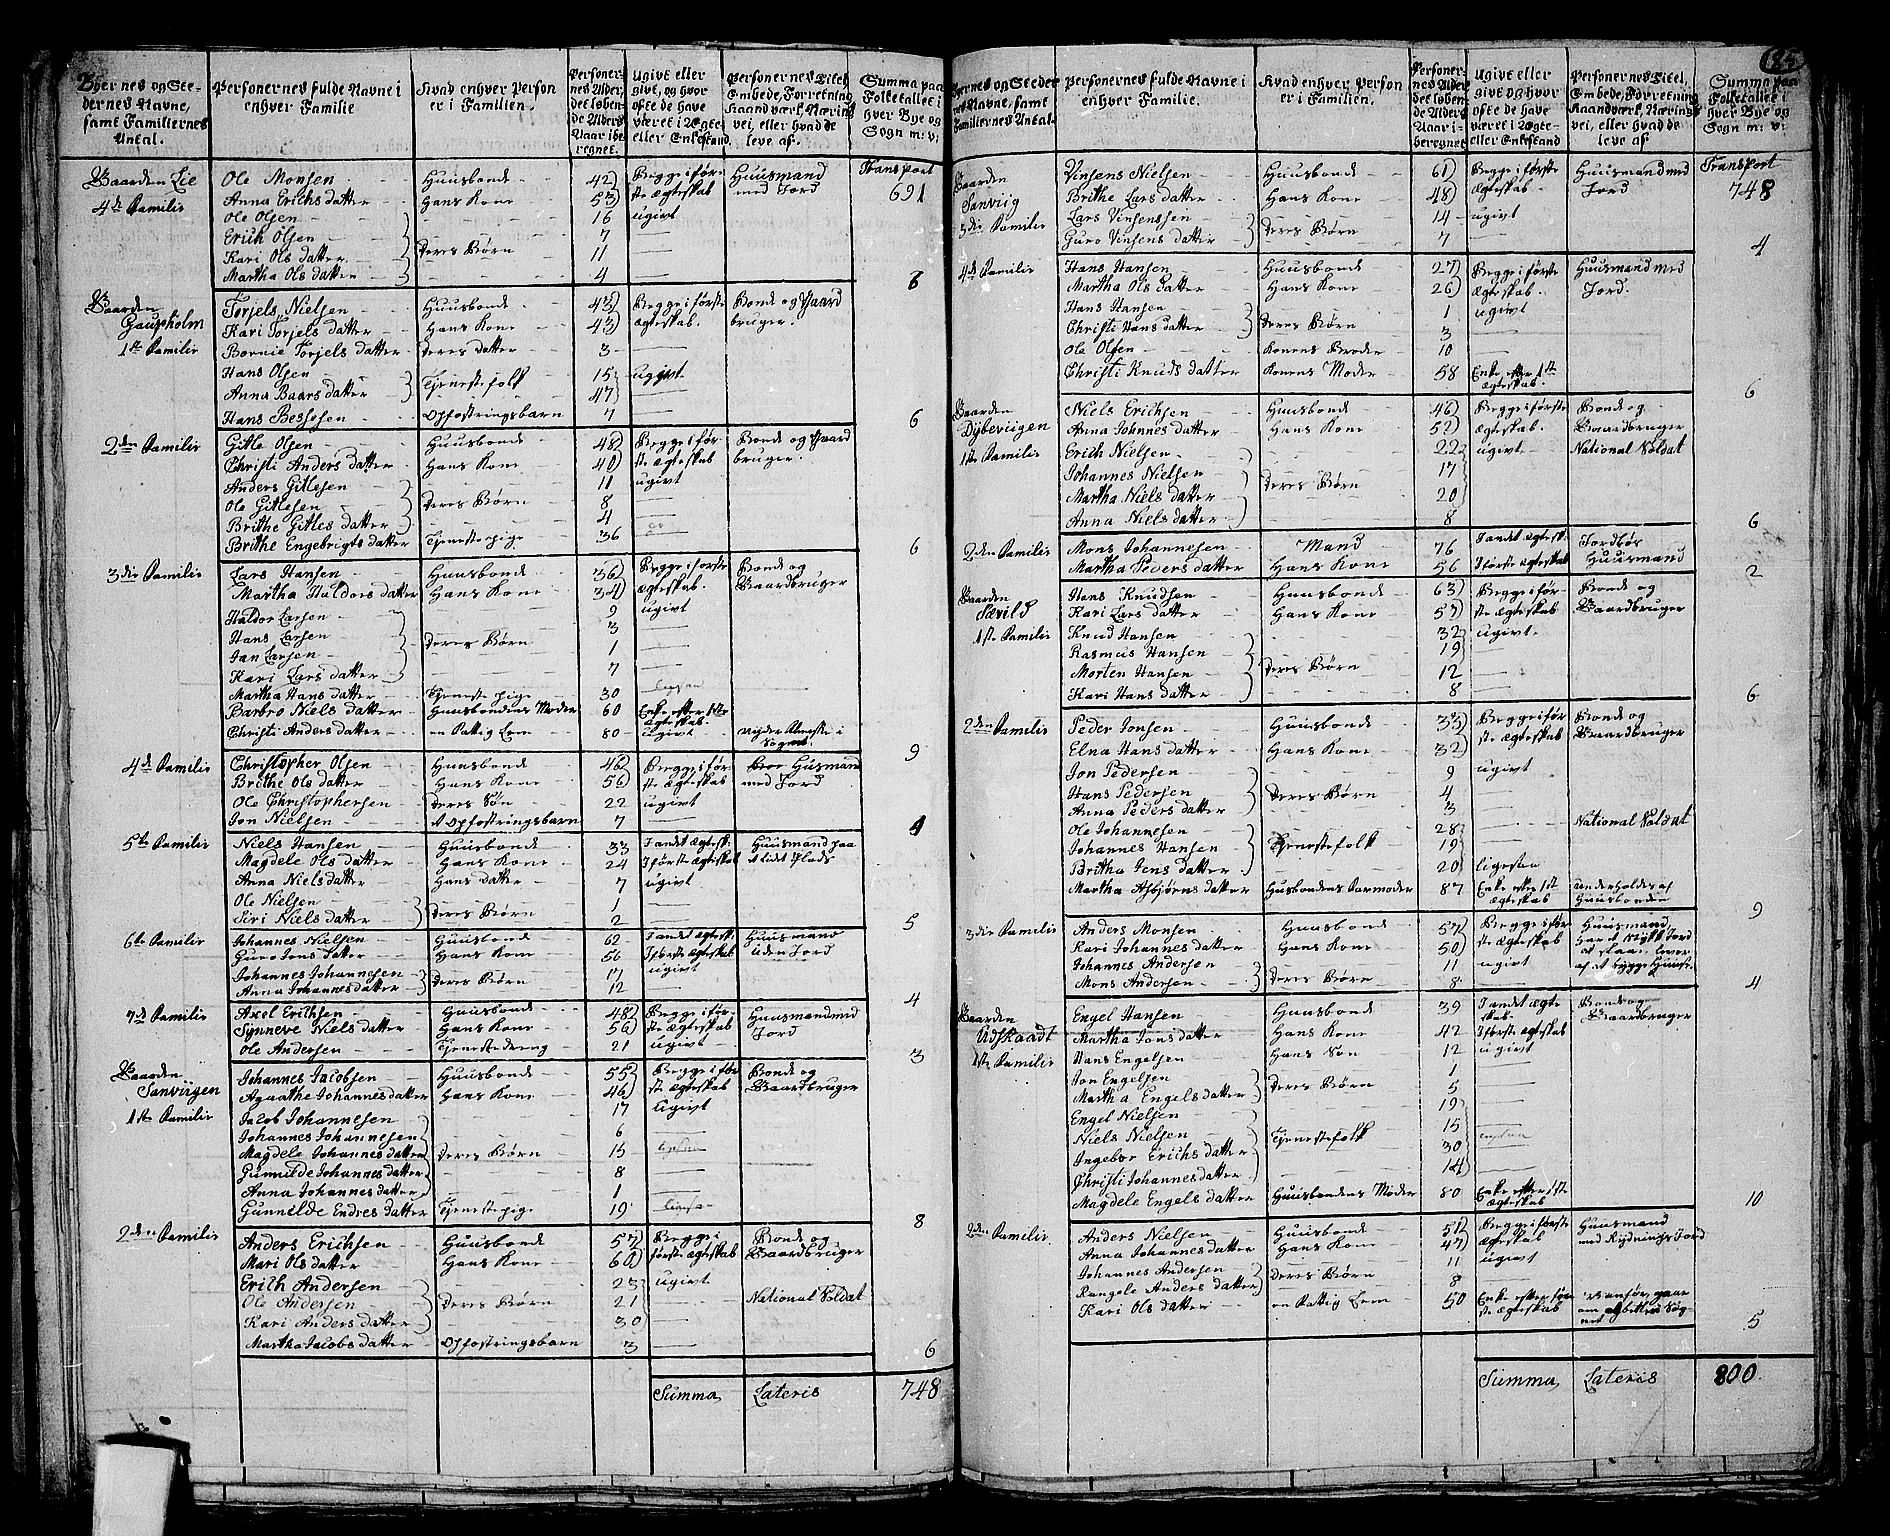 Byernes og Stedernes Navne, samt Familiernes Antal.
Personernes fulde Navne i enhver Familie
Hvad enhver Person er i Familien.
Personernes Alder, det løbende Alders Aar iberegnet.
Ugivt eller givt, og hvor ofte de have været i Ægte- eller Enkestand
Personernes Titel, Embede, Forretning, Haandværk, Næringsvei, eller hvad de leve af.
Summa paa Folketallet i hver Bye og Sogn m: v:
Gaarden Lie Ole Monsen Huusbonde 42 Begge i før- Huusmand Transport
4de Familie Anna Erichs datter Hans Kone 53 ste Ægteskab med Jord 691
Ole Olsen 16 ugivt
Erich Olsen 7
Kari Ols datter Deres Børn 11
Martha Ols datter 4
6
Gaarden Torjels Nielsen Huusbonde 43 Begge i første Bonde og Gaard
Gaupholm Kari Torjels datter Hans Kone 43 Ægteskab. bruger.
1ste Familie Bornie Torjels datter Deres datter 3
Hans Olsen 15 ugivt
Anna Baars datter Tjenestefolk 47
Hans Bessesen Opfostringsbarn 7
6
2den Familie Gitle Olsen Huusbonde 48 Begge i før- Bonde og Gaard
Christi Anders datter Hans Kone 40 ste Ægteskab bruger.
Anders Gitlesen 11 ugivt
Ole Gitlesen Deres Børn 8
Brithe Gitles datter 4
Brithe Engebrigts datter Tjenestepige 36
6
3die Familie Lars Hansen Huusbonde 36 Begge i første Bonde og
Martha Haldors datter Hans Kone 34 Ægteskab. Gaardbruger
Haldor Larsen 9 ugivt
Hans Larsen 3
Jan Larsen Deres Børn 1
Kari Lars datter 7
Martha Hans datter Tjeneste pige 30
Barbro Niels datter Huusbondens Moder 60 Enke efter 1ste Ægteskab.
Christi Anders datter en Fattig Lem 80 ugivt nyder Almisse i Sognet
9
4de Familie Christopher Olsen Huusbonde 46 Begge i før- Husmand
Brithe Ols datter Hans Kone 56 ste Ægteskab med Jord
Ole Christophersen Deres Søn 22 ugivt
Jon Nielsen Opfostringsbarn 7
4
5te Familie Niels Hansen Huusbonde 33 I andet Ægtesk: Huusmand paa
Magdele Ols datter Hans Kone 24 I første Ægteskab et lidet Plads
Anna Niels datter Hans datter 7 ugivt
Ole Nielsen 1
Siri Niels datter Deres Børn 2
5
6te Familie Johannes Nielsen Huusbonde 62 I andet Ægtesk: Huusmand
Guro Jons datter Hans Kone 56 I første Ægteskab uden Jord
Johannes Johannesen 17 ugivt
Anna Johannes datter Deres Børn 12
4
7de Familie Axel Erichsen Huusbonde 48 Begge i før- Huusmand med
Synneve Niels datter Hans Kone 56 ste Ægteskab Jord
Ole Andersen Tjenestedreng 21 ugivt
3
Gaarden Johannes Jacobsen Huusbonde 55 Begge i før Bonde og
Sanviigen Agaathe Johannes datter Hans Kone 46 ste Ægteskab Gaardbruger
1ste Familie Jacob Johannesen 17 Ugivt
Johannes Johannesen 6
Magdele Johannes datter Deres Børn 15
Gunnilde Johannes datter 8
Anna Johannes datter 1
Gunnilde Endres datter Tjenestepige 19
8
2den Familie Anders Erichsen Huusbonde 57 Begge i Bonde og
Mari Ols datter Hans Kone 60 første Ægteskab Gaardbruger
Erich Andersen 23 ugivt
Ole Andersen Deres Børn 21 National Soldat
Kari Anders datter 30
Martha Jacobs datter Opfostringsbarn 3
6
Summa Lateris 748
185
Byernes og Stedernes Navne, samt Familiernes Antal
Personernes fulde Navne i enhver Familie.
Hvad enhver Person er i Familien.
Personernes Alder, det løbende Alders Aar iberegnet
Ugivt eller givt og hvor ofte de have været i Ægte- eller Enkestand
Personernes Titel, Embede, Forretning, Haandværk, Næringsvei, eller hvad de leve af
Summa paa Folketallet i hver Bye og Sogn m: v:
Gaarden Vinsens Nielsen Huusbonde 61 Begge i første Huusmand med Transport
Sanviig Brithe Lars datter Hans Kone 48 Ægteskab. Jord 748
3die Familie Lars Vinsenssen 14 ugivt
Guro Vinsens datter Deres Børn 7
4
4de Familie Hans Hansen Huusbonde 27 Begge i første Huusmand med
Martha Ols datter Hans Kone 26 Ægteskab. Jord.
Hans Hansen 1 ugivt
Christi Hans datter Deres Børn 3
Ole Olsen Konens Broder 10
Christi Knuds datter Konens Moder 58 Enke efter 1ste Ægteskab.
6
Gaarden Niels Erichsen Huusbonde 46 Begge i første Bonde og
Dybeviigen Anna Johannes datter Hans Kone 52 Ægteskab. Gaardbruger
1ste Familie Erich Nielsen 22 ugivt National Soldat
Johannes Nielsen 17
Martha Niels datter Deres Børn 20
Anna Niels datter 8
6
2den Familie Mons Johannesen Mand 76 I andet Ægtesk: Jordløs
Martha Peders datter Hans Kone 56 I første Ægteskab Huusmand
2
Gaarden Hans Knudsen Huusbonde 63 Begge i før- Bonde og
Særild Kari Lars datter Hans Kone 57 ste Ægteskab Gaardbruger
1ste Familie Knud Hansen 32 ugivt.
Rasmus Hansen 19
Morten Hansen Deres Børn 12
Kari Hans datter 8
6
2den Familie Peder Jonsen Huusbonde 33 Begge i før- Bonde og
Elna Hans datter Hans Kone 32 ste Ægteskab Gaardbruger
Jon Pedersen 9 ugivt
Hans Pedersen Deres Børn 4
Anna Peders datter 3
Ole Johannesen 28 National Soldat
Johannes Hansen Tjenestefolk 19
Britha Jens datter 20 ligesaa
Martha Asbjørns datter Husbondens Farmoder 87 Enke efter 1ste Ægteskab underholdes af Huusbonden
9
3die Familie Anders Monsen Huusbonde 57 Begge i før- Huusmand
Kari Johannes datter Hans Kone 50 ste Ægteskab har et Stykke Jord
Johannes Andersen 11 ugivt at slaae, lever
Mons Andersen Deres Børn 8 af at bygge Huuse.
4
Gaarden Engel Hansen Huusbonde 39 I andet Ægteskab. Bonde og
Udskaadt Martha Jons datter Hans Kone 42 I første Ægteskab Gaardbruger
1ste Familie Hans Engelsen Hans Søn 12 ugivt
Jon Engelsen 1
Martha Engels datter Deres Børn 5
Engel Nielsen 19
Niels Nielsen Tjenestefolk 15
Ingebor Erichs datter 30
Christi Johannes datter 14
Magdele Engels datter Huusbondens Moder 80 Enke efter 1ste Ægteskab
10
2den Familie Anders Nielsen Huusbonde 51 Begge i første Huusmand
Anna Johannes datter Hans Kone 47 Ægteskab med Rydnings Jord
Johannes Andersen 11 ugivt
Rangele Anders datter Deres Børn 8
Kari Ols datter en Fattig Lem 50 Enke efter før- ste Ægteskab
5
Summa Lateris 800